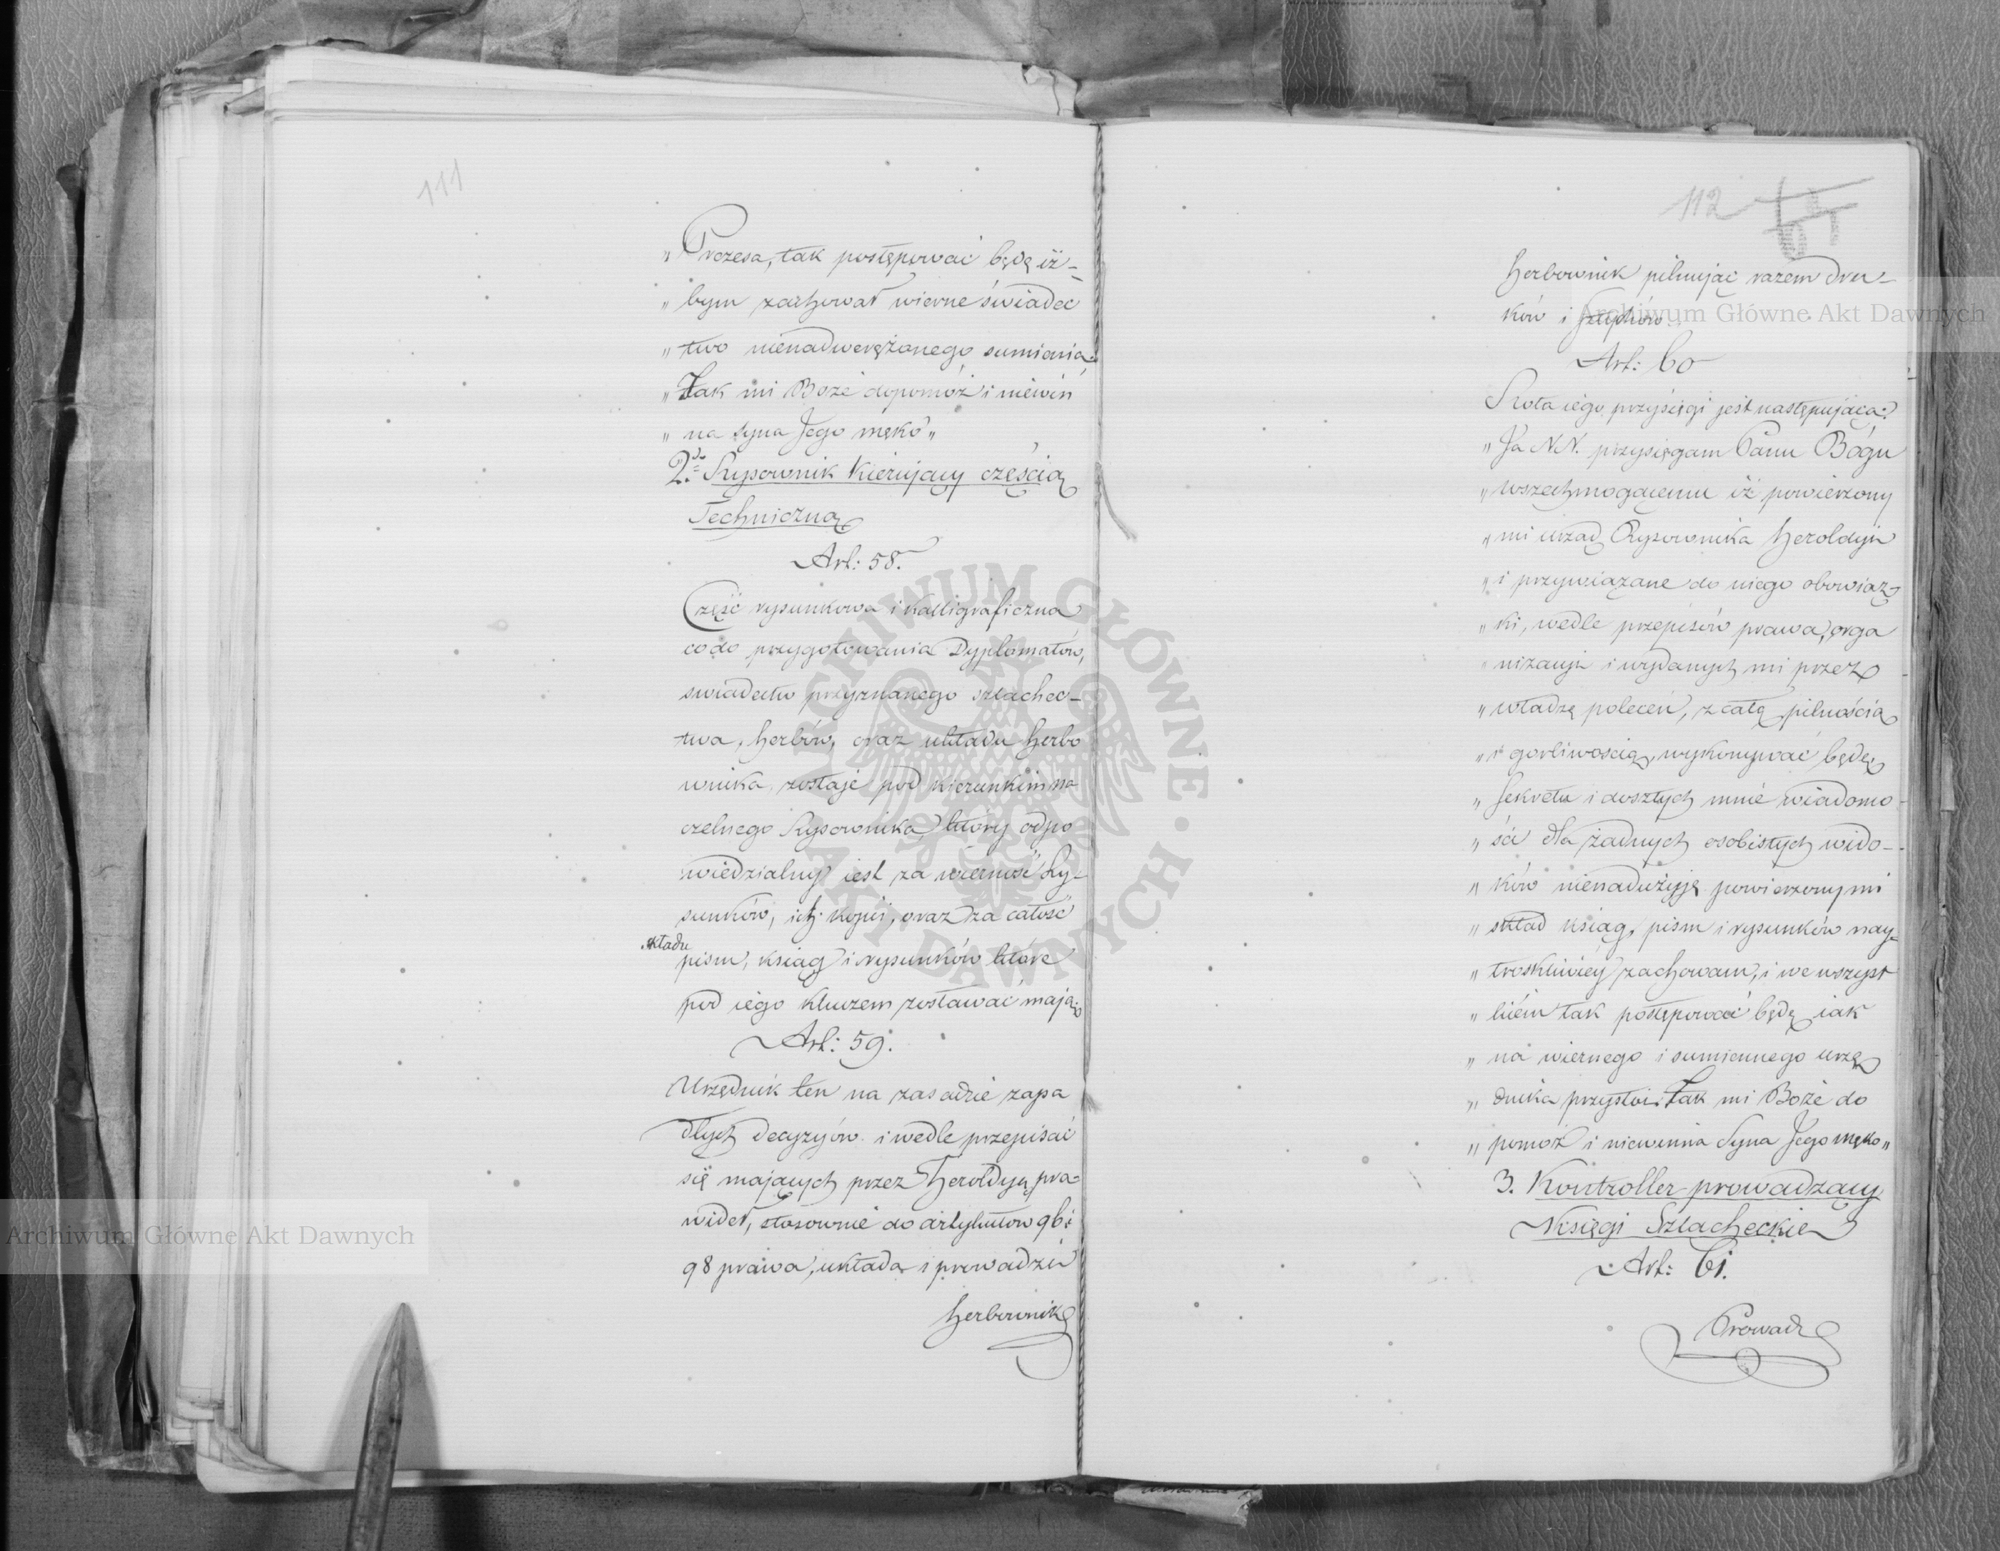 111
„ Prezesa, tak postępować będę iż-
„ bym zachował wierne świadec
„ two nienadwerężonego sumienia.
„ Tak mi Boże dopomóż i niewin
„ na Syna Jego męko„
2do Rysownik kierujący częścią
Techniczną
Art: 58.
Część rysunkowa i kalligraficzna
co do przygotowania Dyplomatów,
swiadectw przyznanego szlachec-
twa, herbów, oraz układu herbo
wnika, zostaje pod kierunkiem na
czelnego Rysownika, który odpo
wiedzialny iest za wierność Ry-
sunków, ich kopii, oraz za całość
składu
pism, ksiąg i rysunków które
pod iego kluczem zostawać mają.
Art: 59.
Urzędnik ten na zasadzie zapa
dłych decyzyów i wedle przepisać
się mających przez Heroldyą pra-
wideł, stosownie do artykułow 96 i
98 prawa, układa i prowadzi
herbownik
112
herbownik pilnując razem dru-
ków i sztychów.
Art: 60
Rota iego przyścięgi jest następująca:
„ Ja N.N. przysięgam Panu Bogu
„ wszechmogącemu iż powierzony
„ mi urząd Rysownika Heroldyi
„ i przywiązane do niego obowiąz
„ ki, wedle przepisów prawa, orga
„ nizacyi i wydanych mi przez
„ władzę poleceń, z całą pilnością
„ i gorliwością, wykonywać będę,
„ Sekretu i doszłych mnie wiadomo
„ ści dla żadnych osobistych wido-
„ ków nienadużyję powierzony mi
„ skład ksiąg, pism i rysunków nay-
„ troskliwiéy zachowam, i we wszyst
„ kiém tak postępować będę iak
„ na wiernego i sumiennego urzę
„ dnika przystoi. Tak mi Boże do
„ pomóż i niewinna Syna Jego męko„
3. Kontroller prowadzący
Księgi Szlacheckie
Art: 61.
Prowadz
Archiwum Główne Akt Dawnych
Archiwum Główne Akt Dawnych
ARCHIWUM GŁÓWNE · AKT DAWNYCH ·